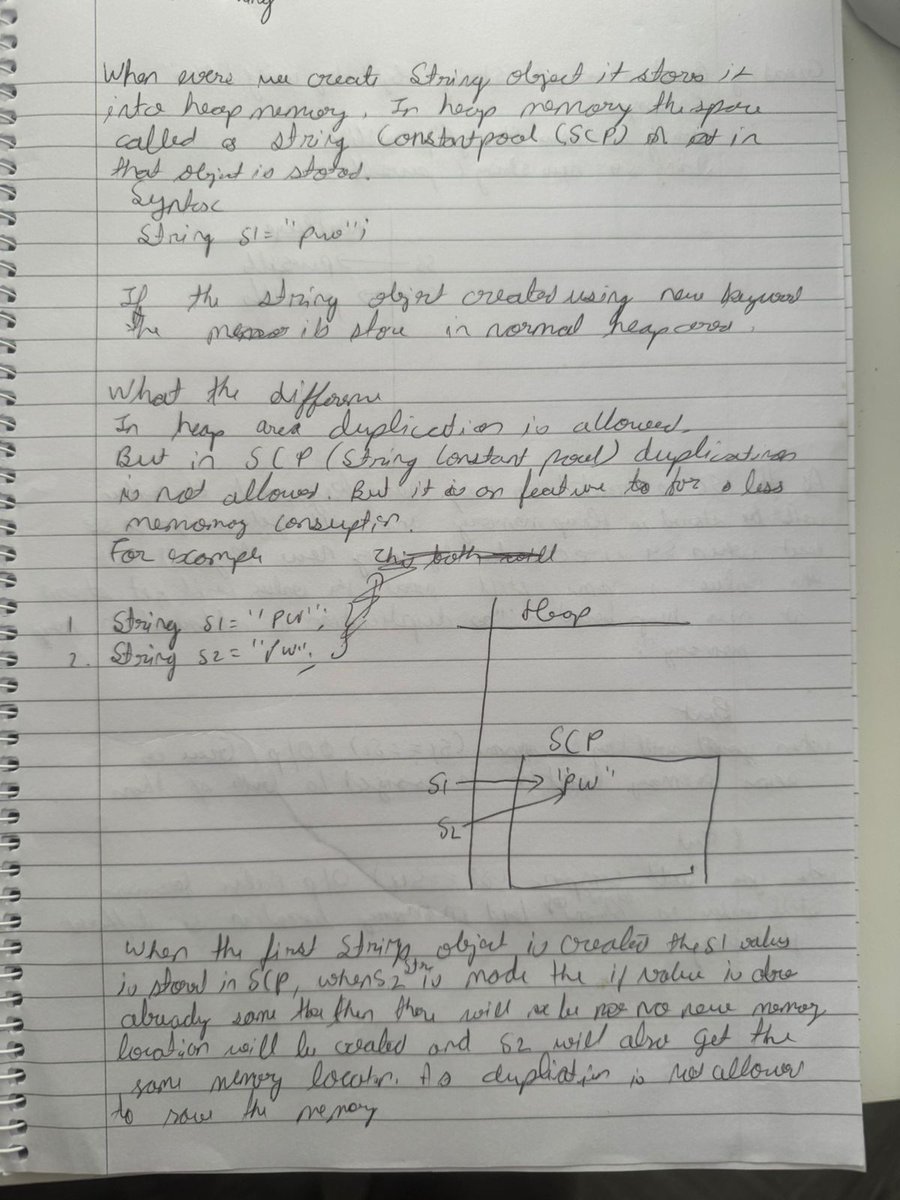 When evere we create String object it stores it
into heap memory. In heap memory the space
called a string Constantpool (SCP) in
that object is stored.
Syntax
String s1 = "pwo";
If the string object created using new keyword
the is store in normal heap area.
What the difference
In heap area duplication is allowed.
But in SCP (String Constant pool) duplication
is not allowed. But it is on feature to for a less
memomory consuption.
For example This both will
1 String s1 = "PW";
2. String s2 = "PW";
Heap
SCP
S1 "PW"
S2
When the first String object is created the s1 value
is stored in SCP, when s2 str is made the if value is
already same then there will be no new memory
location will be created and s2 will also get the
same memory location. As duplication is not allowed
to save the memory